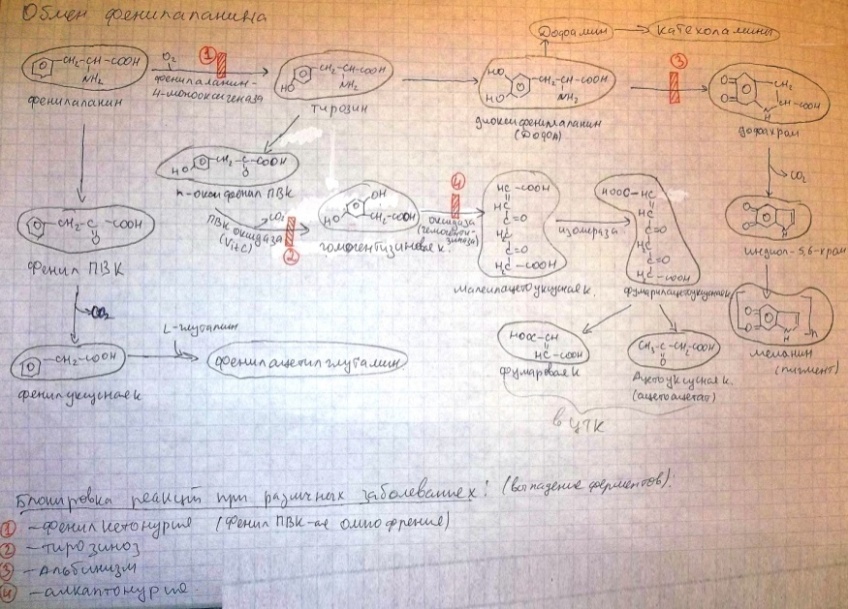 Обмен фенилаланина
Дофамин
катехоламины
CH₂-CH-COOH
NH₂
фенилаланин
O₂
1
фенилаланин-
4-монооксигеназа
HO
CH₂-CH-COOH
NH₂
тирозин
HO
HO
CH₂-CH-COOH
NH₂
диоксифенилаланин
(ДОФА)
3
O
O
CH₂
CH-COOH
N
H
дофахром
HO
CH₂-C-COOH
O
п-оксифенил ПВК
ПВК оксидаза
(Vit C)
CO₂
2
OH
HO
CH₂-COOH
гомогентизиновая к.
4
оксидаза
HC-COOH
HC
C=O
H₂C
C=O
H₂C-COOH
малеилацетоуксусная к.
изомераза
HOOC-HC
HC
C=O
H₂C
C=O
H₂C-COOH
CO₂
O
O
N
H
индол-5,6-хром
CH₂-C-COOH
O
фенил ПВК
CO₂
L-глутамин
CH₂-COOH
фенилуксусная к
фенилацетилглутамин
HOOC-CH
HC-COOH
фумаровая к
CH₃-C-CH₂-COOH
O
Ацетоуксусная к.
(ацетоацетат)
в ЦТК
O
O
N
H
n
меланин
(пигмент)
Блокировка реакций при различных заболеваниях: (выпадение ферментов).
1 - фенилкетонурия (фенил ПВК-ая олигофрения)
2 - тирозиноз
3 - альбинизм
4 - алкаптонурия